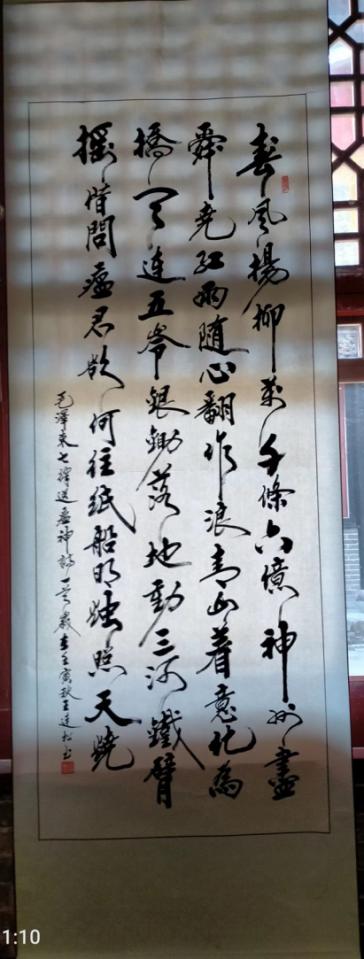 春風揚柳萬千條六億神州盡
舜堯紅雨随心翻作浪青山着意化為
橋天連五岺銀鋤落地動三河鐵臂
摇借問瘟君欲何往紙船明燭照天燒
毛澤東七律送瘟神詩一首歲在壬寅秋王廷松書
1:10